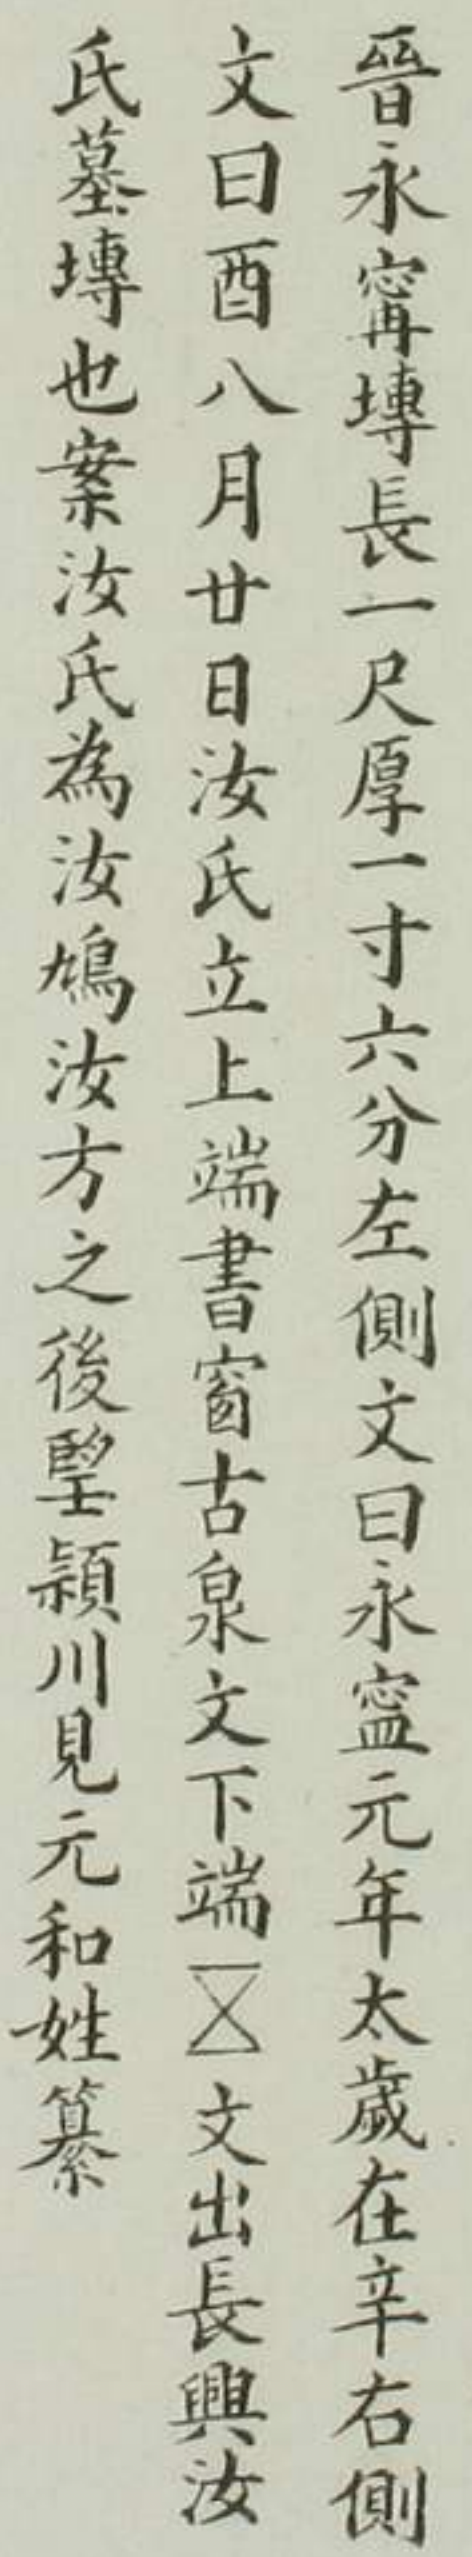 晉永甯塼長一尺厚一寸六分左側文曰永寍元年太歲在辛右側
文曰酉八月廿日汝氏立上端書窗古泉文下端文出長興汝
氏墓塼也案汝氏為汝鳩汝方之後朢潁川見元和姓纂